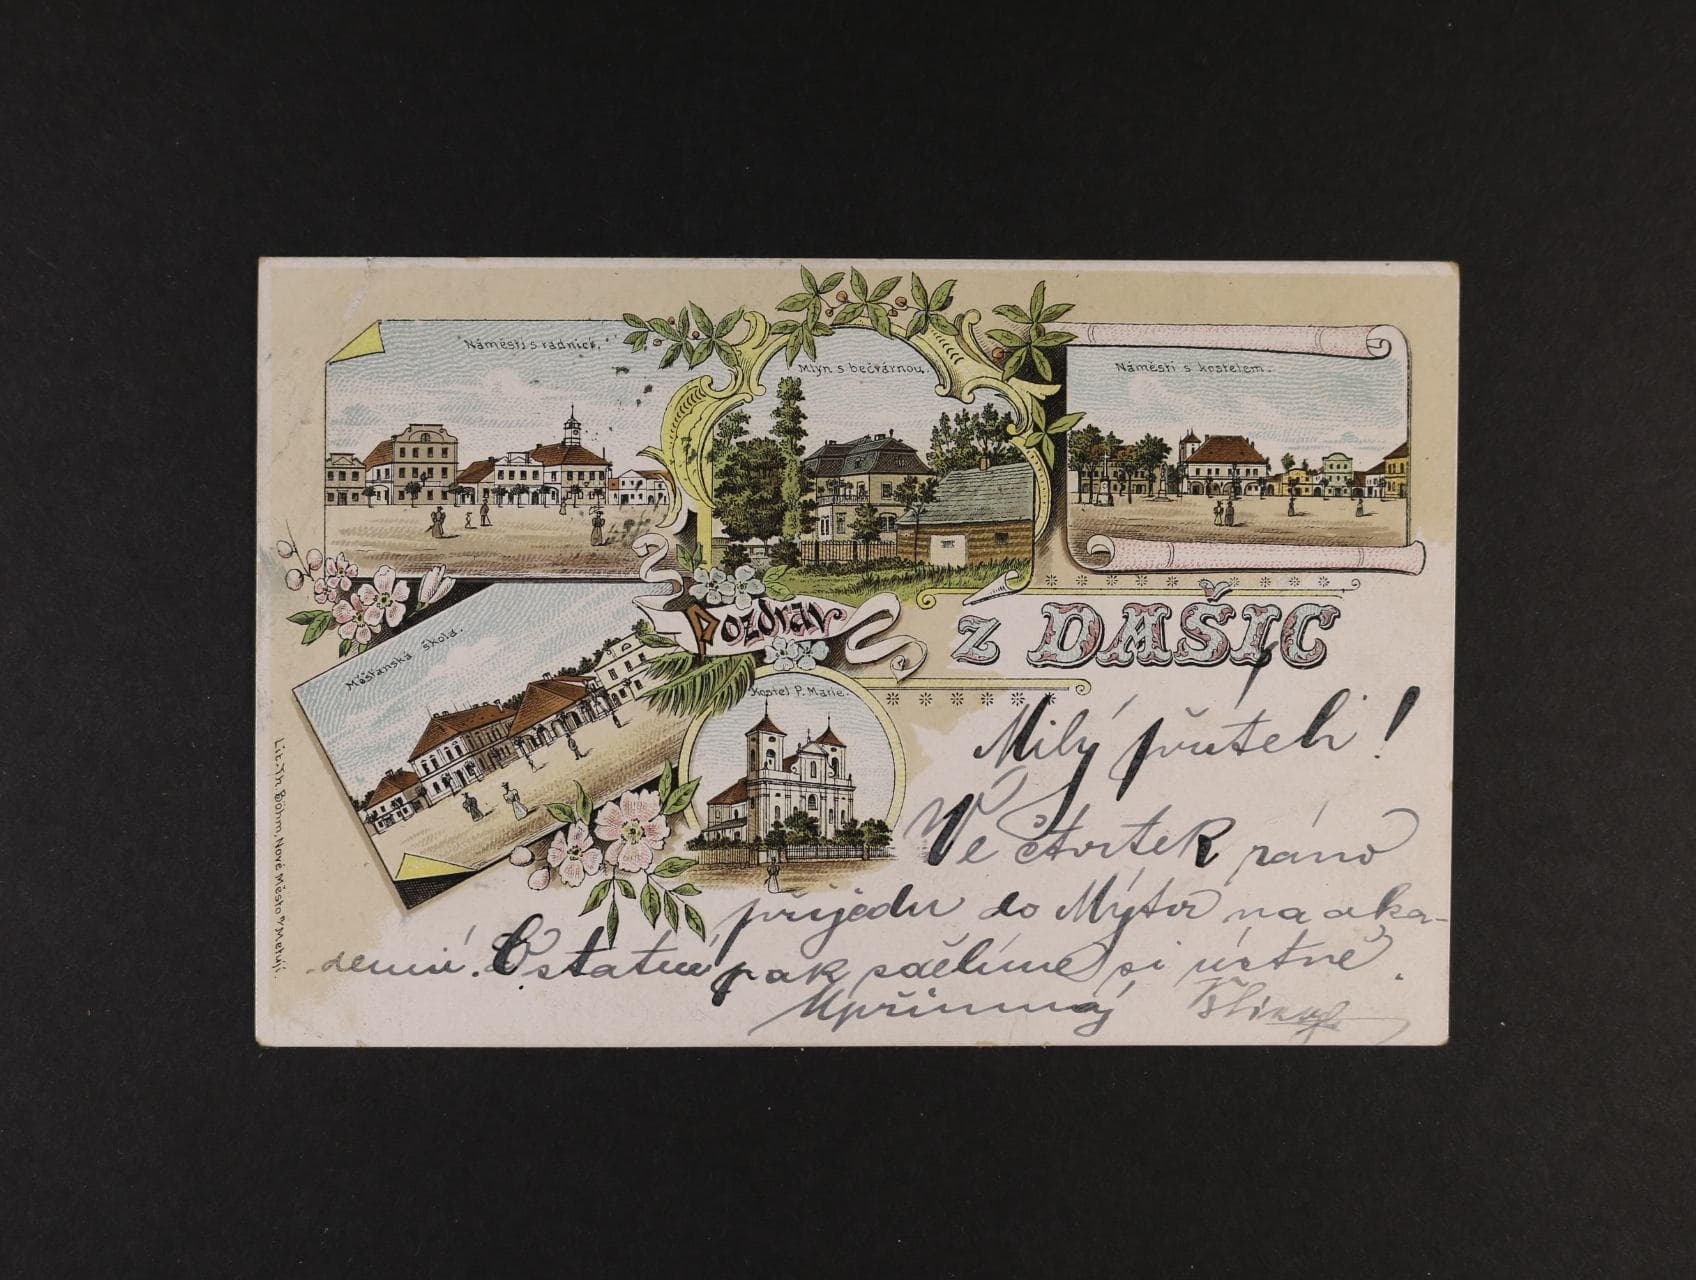 Náměstí s radnicí.
Mlýn s bečvárnou.
Náměstí s kostelem.
Pozdrav
z DAŠIC
Měšťanská škola.
Kostel P. Marie.
Lit. Th. Böhm, Nové Město n/Metují.
Milý příteli!
Ve čtvrtek ráno
přijedu do Mýta na aka-
demii. Ostatní pak sdělíme si ústně.
Upřímný